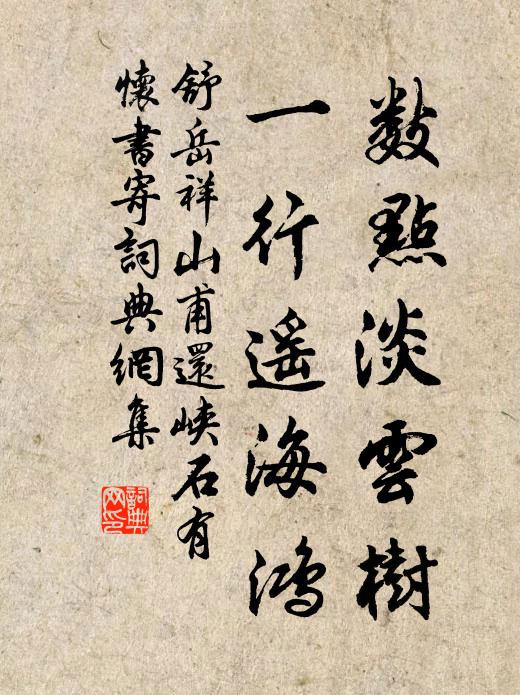 數點淡雲樹
一行遥海鴻
舒岳祥山甫還峡石有
懷書寄詞典網集
詞典网印